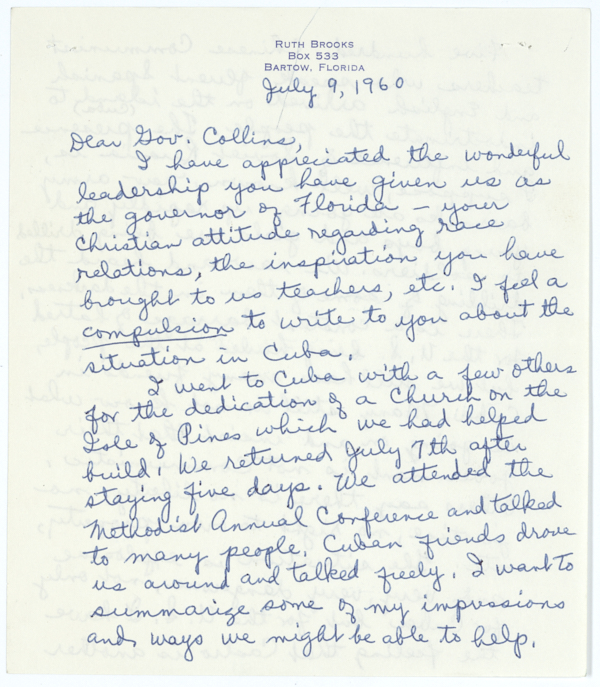 RUTH BROOKS
BOX 533
BARTOW, FLORIDA
July 9, 1960
Dear Gov. Collins,
I have appreciated the wonderful
leadership you have given us as
the governor of Florida — your
Christian attitude regarding race
relations, the inspiration you have
brought to us teachers, etc. I feel a
compulsion to write to you about the
situation in Cuba.
I went to Cuba with a few others
for the dedication of a Church on the
Isle of Pines which we had helped
build. We returned July 7th after
staying five days. We attended the
Methodist Annual Conference and talked
to many people. Cuban friends drove
us around and talked freely. I want to
summarize some of my impressions
and ways we might be able to help.